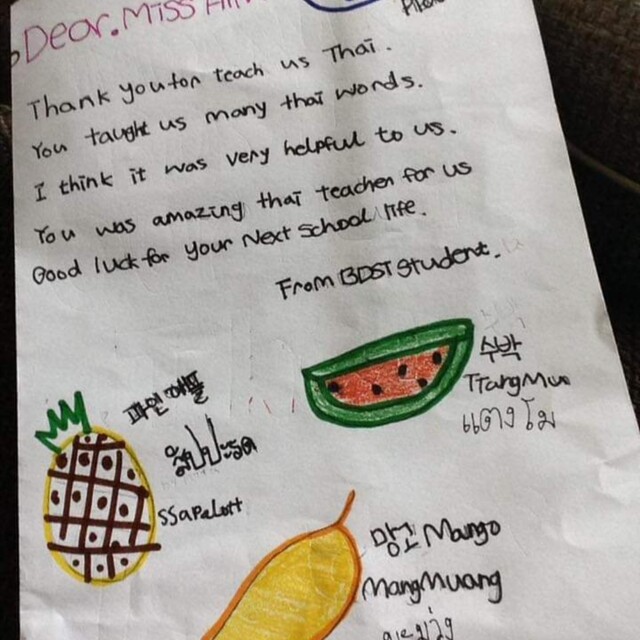 Dear. MISS
Thank you for teach us Thai.
You taught us many thai words.
I think it was very helpful to us.
You was amazing thai teacher for us
Good luck for your Next School life.
From BDST student.
수박
TrangMua
แตงโม
파인애플
สัปปะรด
ssapalott
망고 Mango
MangMuang